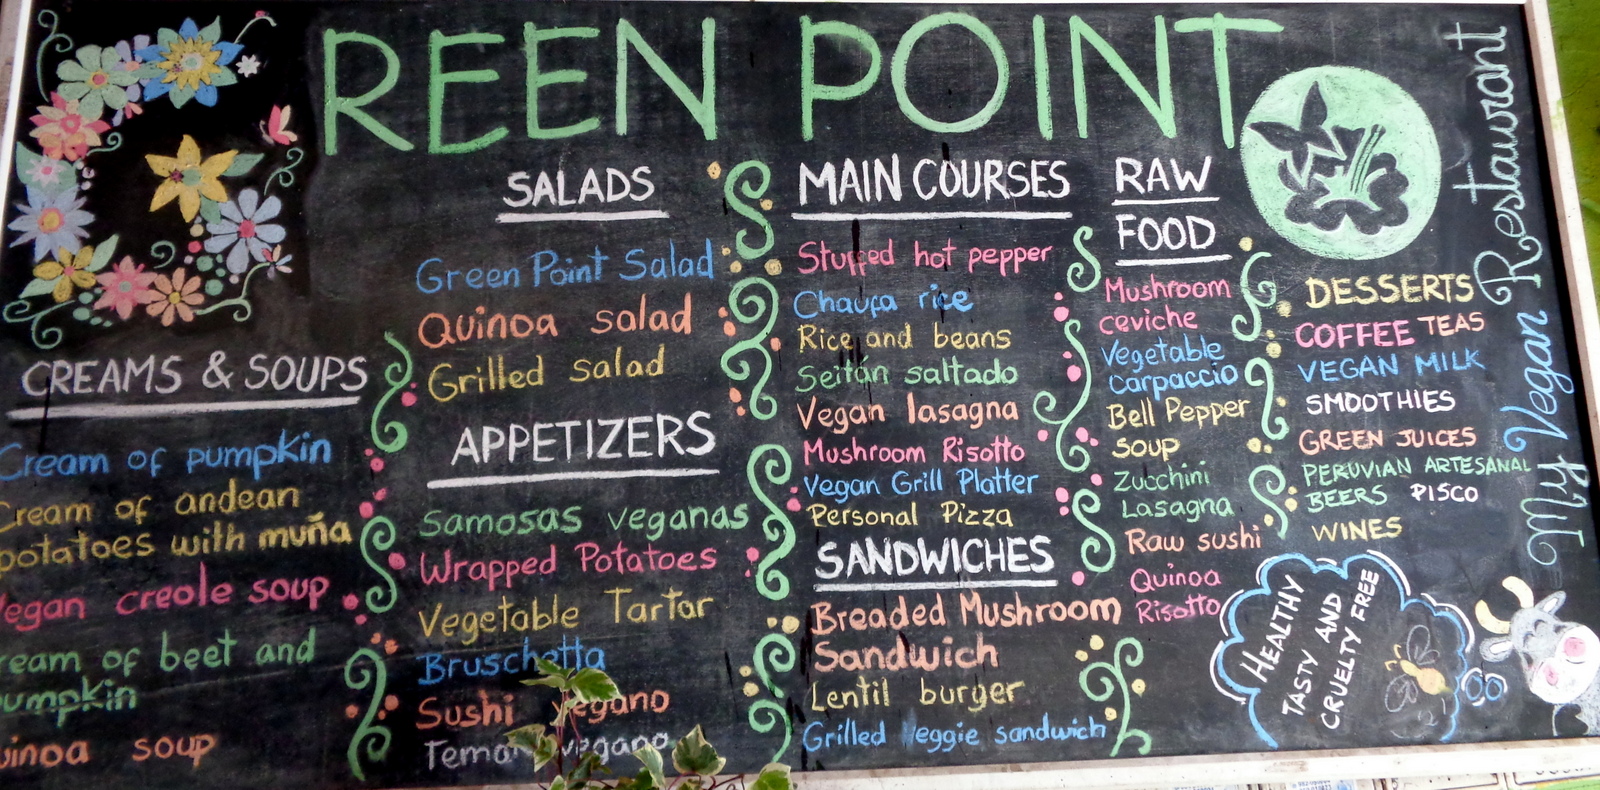 REEN POINT
CREAMS & SOUPS
Cream of pumpkin
Cream of andean
potatoes with muña
Vegan creole soup
ream of beet and
umpkin
uinoa soup
SALADS
Green Point Salad
Quinoa salad
Grilled salad
APPETIZERS
Samosas veganas
Wrapped Potatoes
Vegetable Tartar
Bruschetta
Sushi vegano
vegano
MAIN COURSES
Stuffed hot pepper
Chaufa rice
Rice and beans
Seitán saltado
Vegan lasagna
Mushroom Risotto
Vegan Grill Platter
Personal Pizza
SANDWICHES
Breaded Mushroom
Sandwich
Lentil burger
Grilled veggie sandwich
RAW
FOOD
Mushroom
ceviche
Vegetable
Carpaccio
Bell Pepper
soup
Zucchini
Lasagna
Raw sushi
Quinoa
Risotto
DESSERTS
COFFEE TEAS
VEGAN MILK
SMOOTHIES
GREEN JUICES
PERUVIAN ARTESANAL
BEERS PISCO
WINES
HEALTHY
TASTY AND
CRUELTY FREE
My Vegan Restaurant